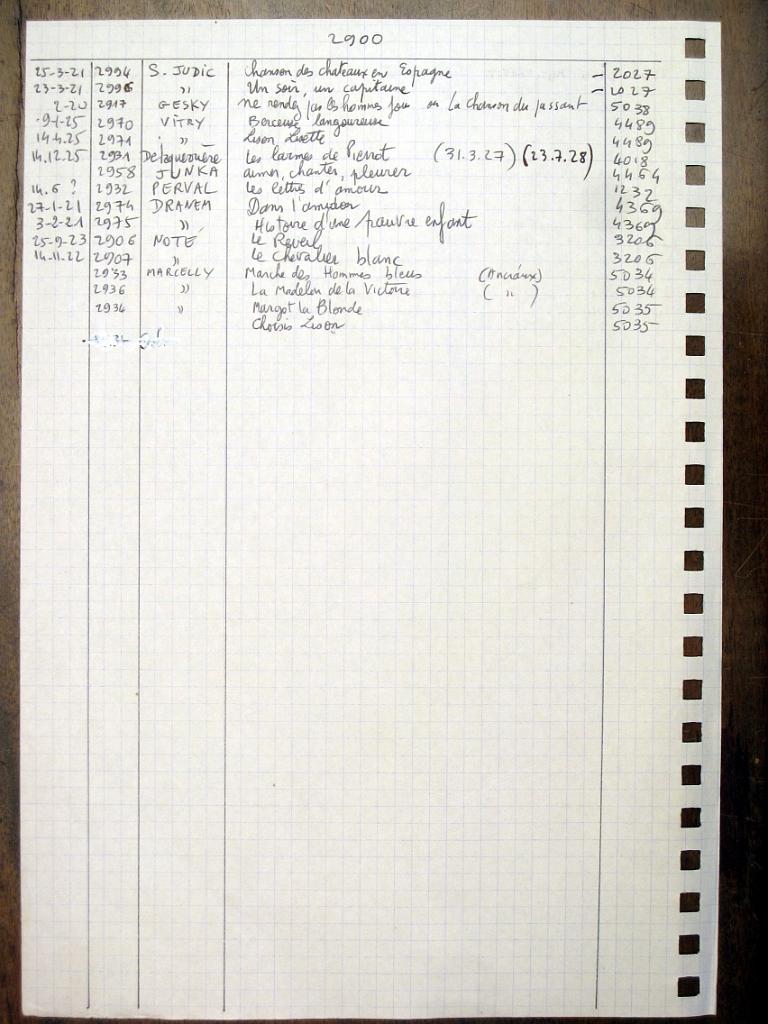 2900
25-3-21 2994 S. JUDIC Chanson des chateaux en Espagne – 2027
23-3-21 2996 " Un soir, un capitaine – 2027
2-20 2917 GESKY ne rendez pas les hommes fous ou La chanson du passant 5038
9-1-25 2970 VITRY Berceuse langoureuse 4489
14.4.25 2971 " Lison Lisette 4489
14.12.25 2931 Delaquerrière Les larmes de Pierrot (31.3.27) (23.7.28) 4018
2958 JUNKA aimer, chanter, pleurer 4464
14.6 ? 2932 PERVAL les lettres d'amour 1232
27-1-21 2974 DRANEM Dans l'amidon 4369
3-2-21 2975 " Histoire d'une pauvre enfant 4369
25-9-23 2906 NOTÉ Le Reveil 3206
14.11.22 2907 " Le Chevalier blanc 3206
2933 MARCELLY Marche des Hommes bleus (Anciaux) 5034
2936 " La Madelon de la Victoire ( " ) 5034
2934 " Margot la Blonde 5035
Choisis Lison 5035